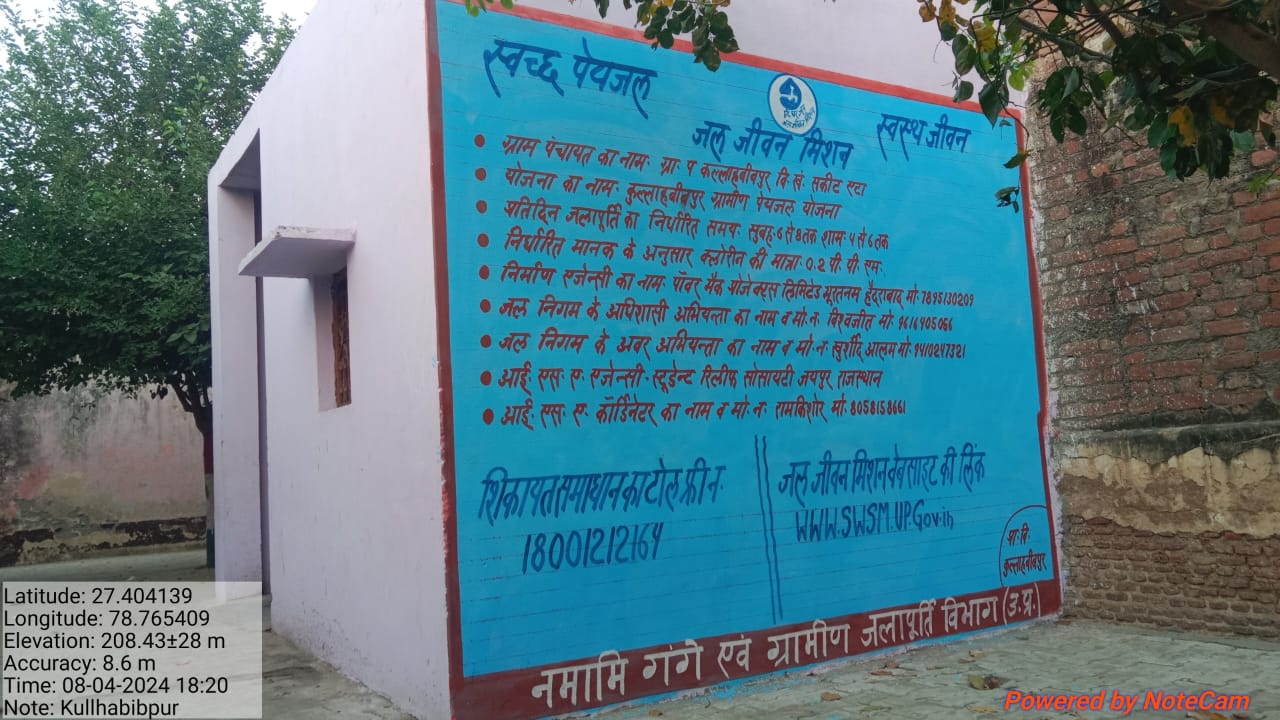 स्वच्छ पेयजल
जल जीवन मिशन
स्वस्थ जीवन
• ग्राम पंचायत का नामः ग्राः प कल्लाहबीबपुर विः खंः सकीट एटा
• योजना का नामः कुल्लाहबीबपुर ग्रामीण पेयजल योजना
• प्रतिदिन जलापूर्ति का निर्धारित समयः सुबहः 6 से 8 तक शामः 4 से 6 तक
• निर्धारित मानक के अनुसार क्लोरीन की मात्राः 0.2 पीः पीः एमः
• निर्माण एजेन्सी का नामः पॉवर मैक प्रोजेक्ट्स लिमिटेड हैदराबाद मोः 7895130209
• जल निगम के अधिशासी अभियन्ता का नाम व मोः नः विश्वजीत मोः 9616405056
• जल निगम के अवर अभियन्ता का नाम व मोः नः खुर्शीद आलम मोः 9410247321
• आईः एसः एः एजेन्सीः स्टूडेन्ट रिलीफ सोसायटी जयपुर राजस्थान
• आईः एसः एः कॉर्डिनेटर का नाम व मोः नः रामकिशोर मोः 8058158661
शिकायत समाधान का टोल फ्री नः
18001212164
जल जीवन मिशन वेबसाइट की लिंक
WWW.SWSM.UP.Gov.in
प्राः विः
कुल्लाहबीबपुर
नमामि गंगे एवं ग्रामीण जलापूर्ति विभाग (उ.प्र.)
Latitude: 27.404139
Longitude: 78.765409
Elevation: 208.43±28 m
Accuracy: 8.6 m
Time: 08-04-2024 18:20
Note: Kullhabibpur
Powered by NoteCam